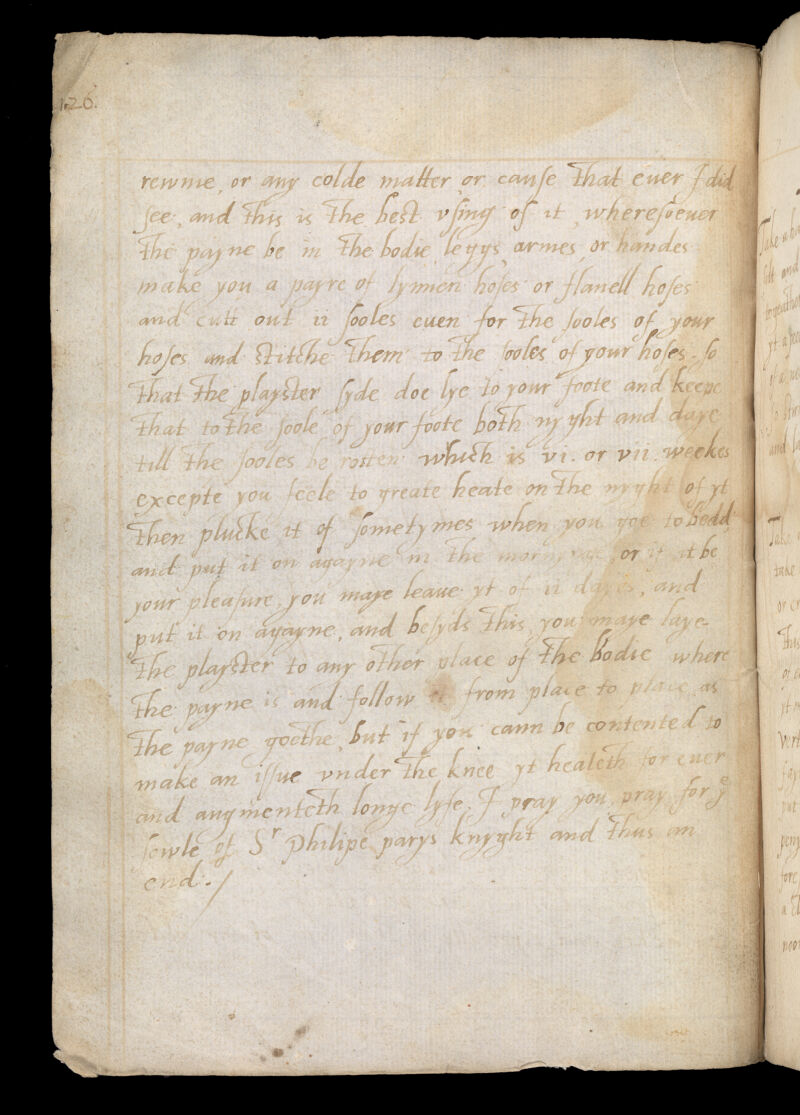 126.
rewme, or any colde matter or cause that euer I did
see, and this is the best vsing of it, wheresoeuer
the payne be in the bodie leggs armes, or handes
make you a payre of lynnen hoses or flanell hoses
and cutt out ii sooles euen for the sooles of your
hoses and stitche them to the sooles of your hoses so
that the playster syde doe lye to your foote and keepe
that to the soole of your foote both nyght and daye
till the sooles be rotten which is vi. or vii. weekes
excepte you feele to greate heate on the nyght of yt
then plucke it of sometymes when you goe to bedd
and put it on agayne in the mornynge, or if it be
your pleasure, you maye leaue yt of ii dayes, and
put it on agayne, and besyds this, you maye laye
the playster to any other place of the bodie where
the payne is and follow it from place to place as
the payne goethe, but if you cann be contented to
make an issue vnder the knee yt healeth for euer
and augmenteth longe lyfe. I pray you pray for yͤ
sowle of Sʳ Philipe parys knyght and thus an
end./